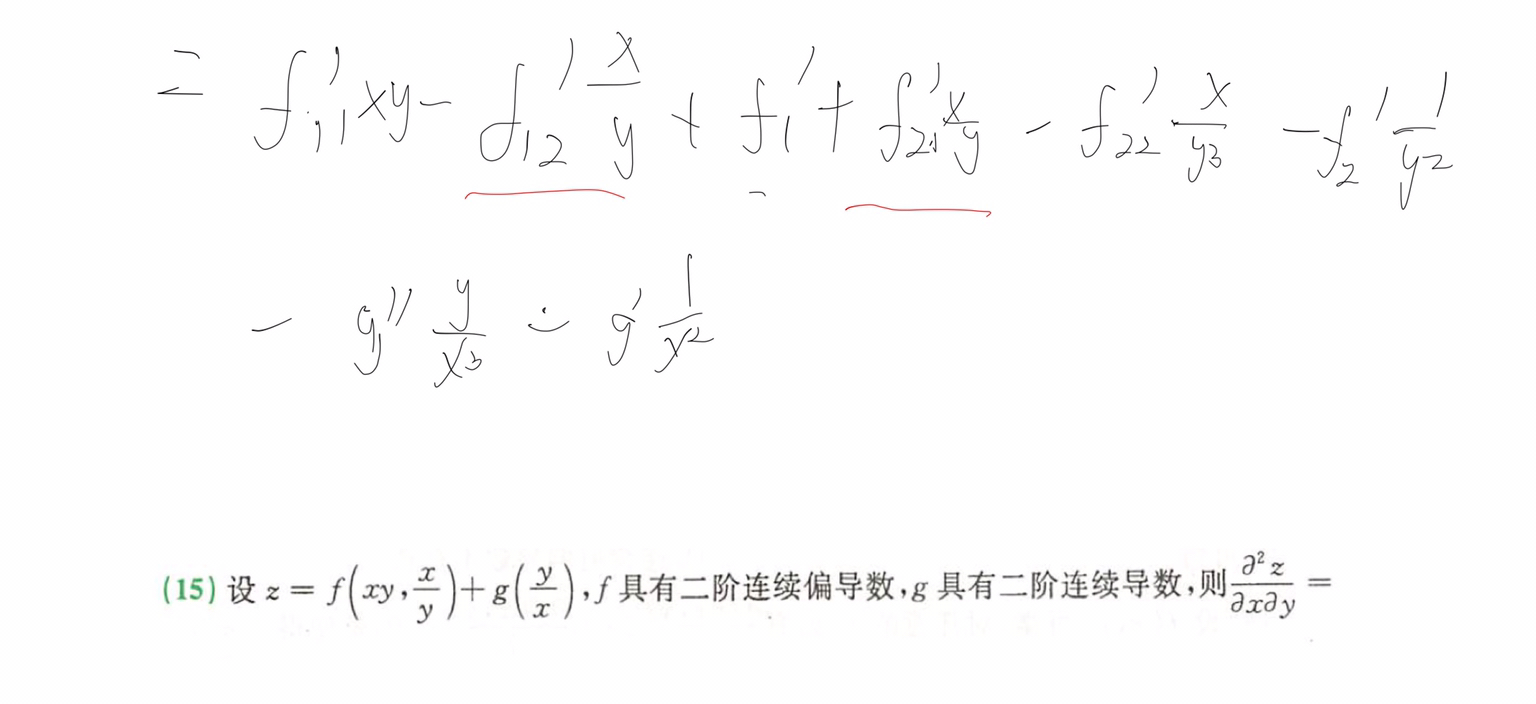 = f₁₁' xy - f₁₂' x/y + f₁' + f₂₁' x/y - f₂₂' x/y³ - f₂' 1/y²
- g'' y/x³ - g' 1/x²
(15) 设 z = f(xy, x/y) + g(y/x), f 具有二阶连续偏导数, g 具有二阶连续导数, 则 ∂²z/∂x∂y =